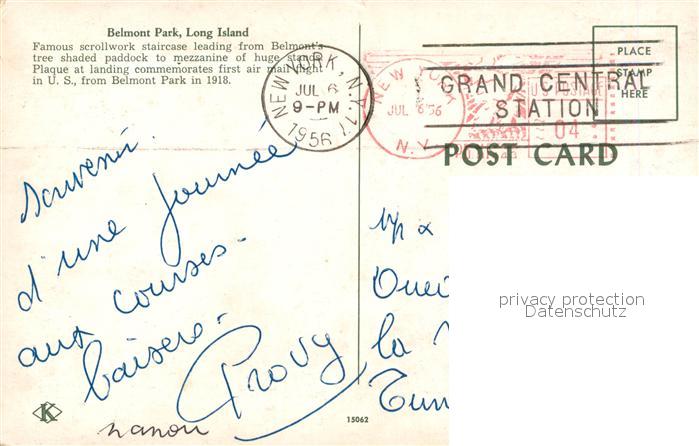 Belmont Park, Long Island
Famous scrollwork staircase leading from Belmont's
tree shaded paddock to mezzanine of huge stands.
Plaque at landing commemorates first air mail flight
in U. S., from Belmont Park in 1918.
NEW YORK, N.Y. 17
JUL 6
9-PM
1956
NEW YORK
JUL 6 '56
N.Y.
GRAND CENTRAL
STATION
04
PLACE
STAMP
HERE
POST CARD
Souvenir
d'une journée
aux courses.
baisers.
Provy
nanou
la
Tun
privacy protection
Datenschutz
K
15062